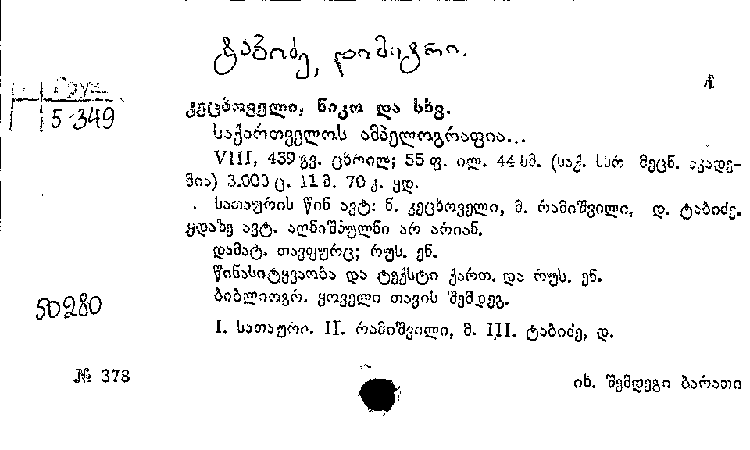 ტაბიძე, დიმიტრი.
Груз
5-349
კეცხოველი, ნიკო და სხვ.
საქართველოს ამპელოგრაფია...
VIII, 439 გვ. ცხრილ; 55 ფ. ილ. 44 სმ. (საქ. სსრ მეცნ. აკადე-
მია) 3.000 ც. 11 მ. 70 კ. ყდ.
სათაურის წინ ავტ: ნ. კეცხოველი, მ. რამიშვილი, დ. ტაბიძე.
ყდაზე ავტ. აღნიშნულნი არ არიან.
დამატ. თავფურც; რუს. ენ.
წინასიტყვაობა და ტექსტი ქართ. და რუს. ენ.
ბიბლიოგრ. ყოველი თავის შემდეგ.
50280
I. სათაური. II. რამიშვილი, მ. III. ტაბიძე, დ.
№ 378
იხ. შემდეგი ბარათი